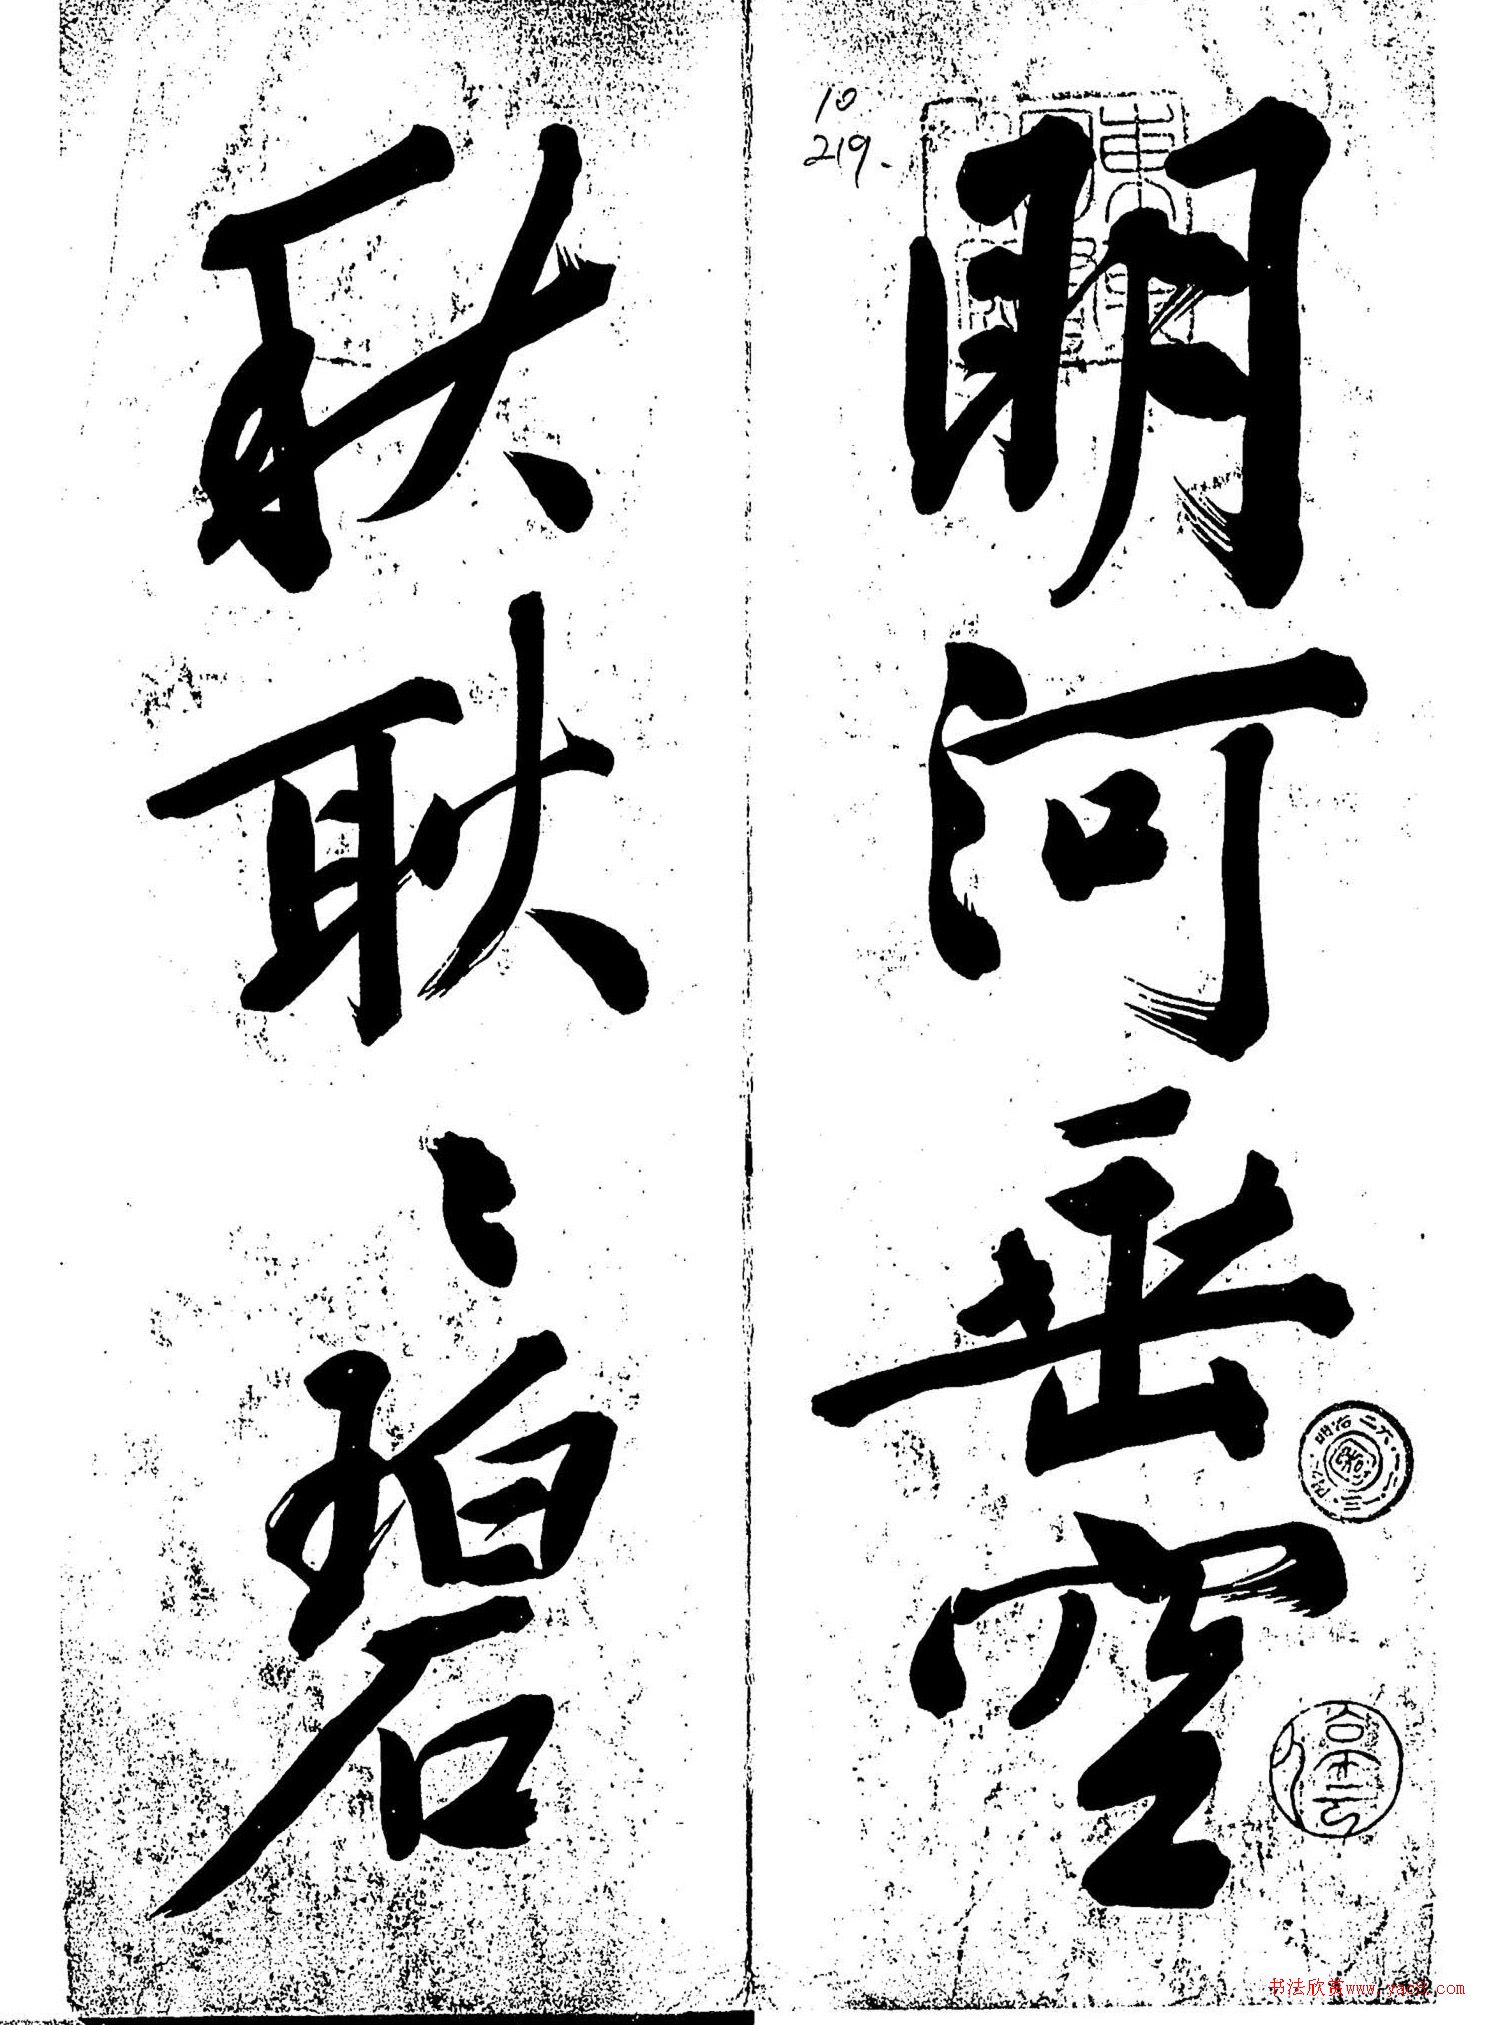 10
219.
明河垂空
秋耿〻碧
书法欣赏www.yac8.com